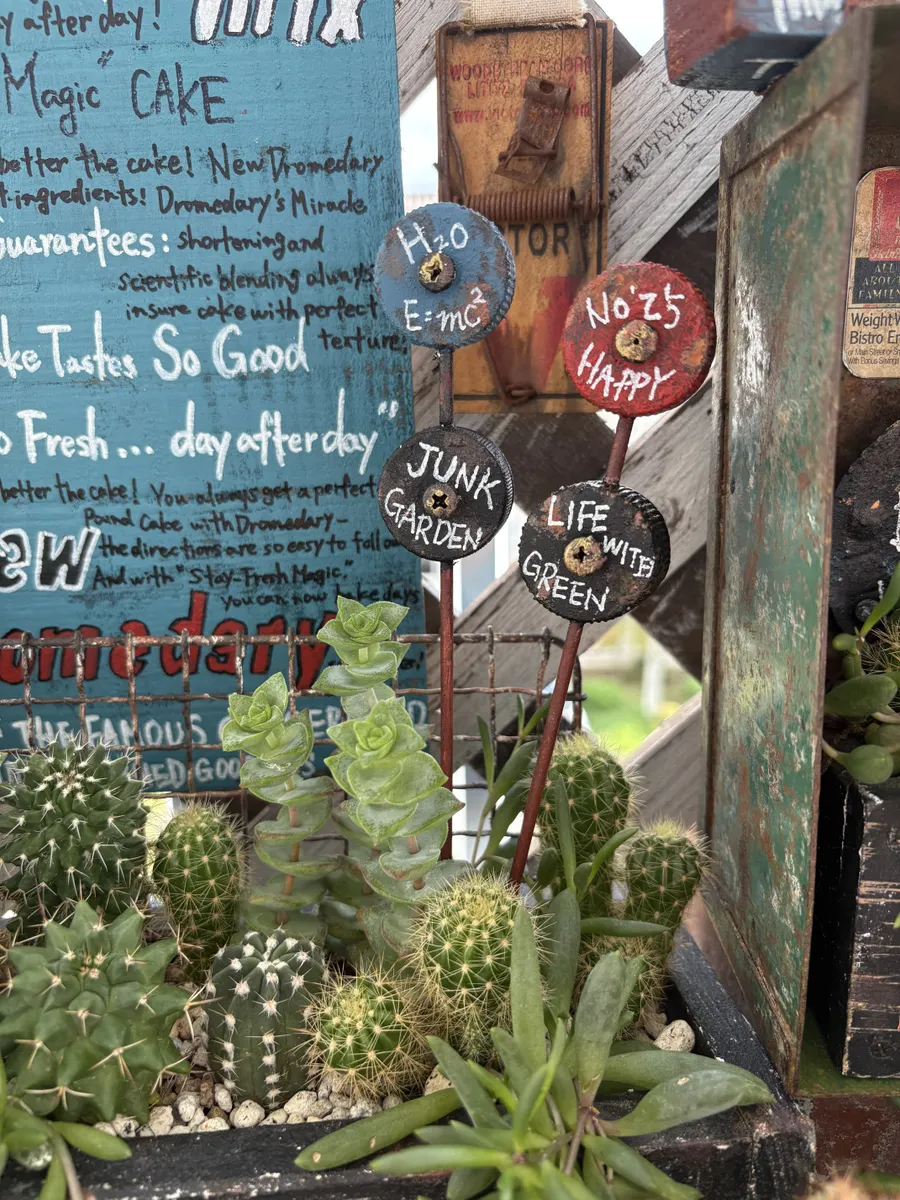 after day!
Magic" CAKE
better the cake! New Dromedary
ingredients! Dromedary's Miracle
Guarantees: shortening and
scientific blending always
insure cake with perfect
texture,
Tastes So Good
Fresh... day after day"
better the cake! You always get a perfect
Pound Cake with Dromedary-
the directions are so easy to follow
And with "Stay-Fresh Magic."
you can now bake days
omedary
THE FAMOUS
ED GOO
WOODSTREAM CORP
TOR
H2O
E=mc²
JUNK
GARDEN
No'z5
HAPPY
LIFE
WITH
GREEN
ALL
ABOU
FAMILY
Weight W
Bistro En